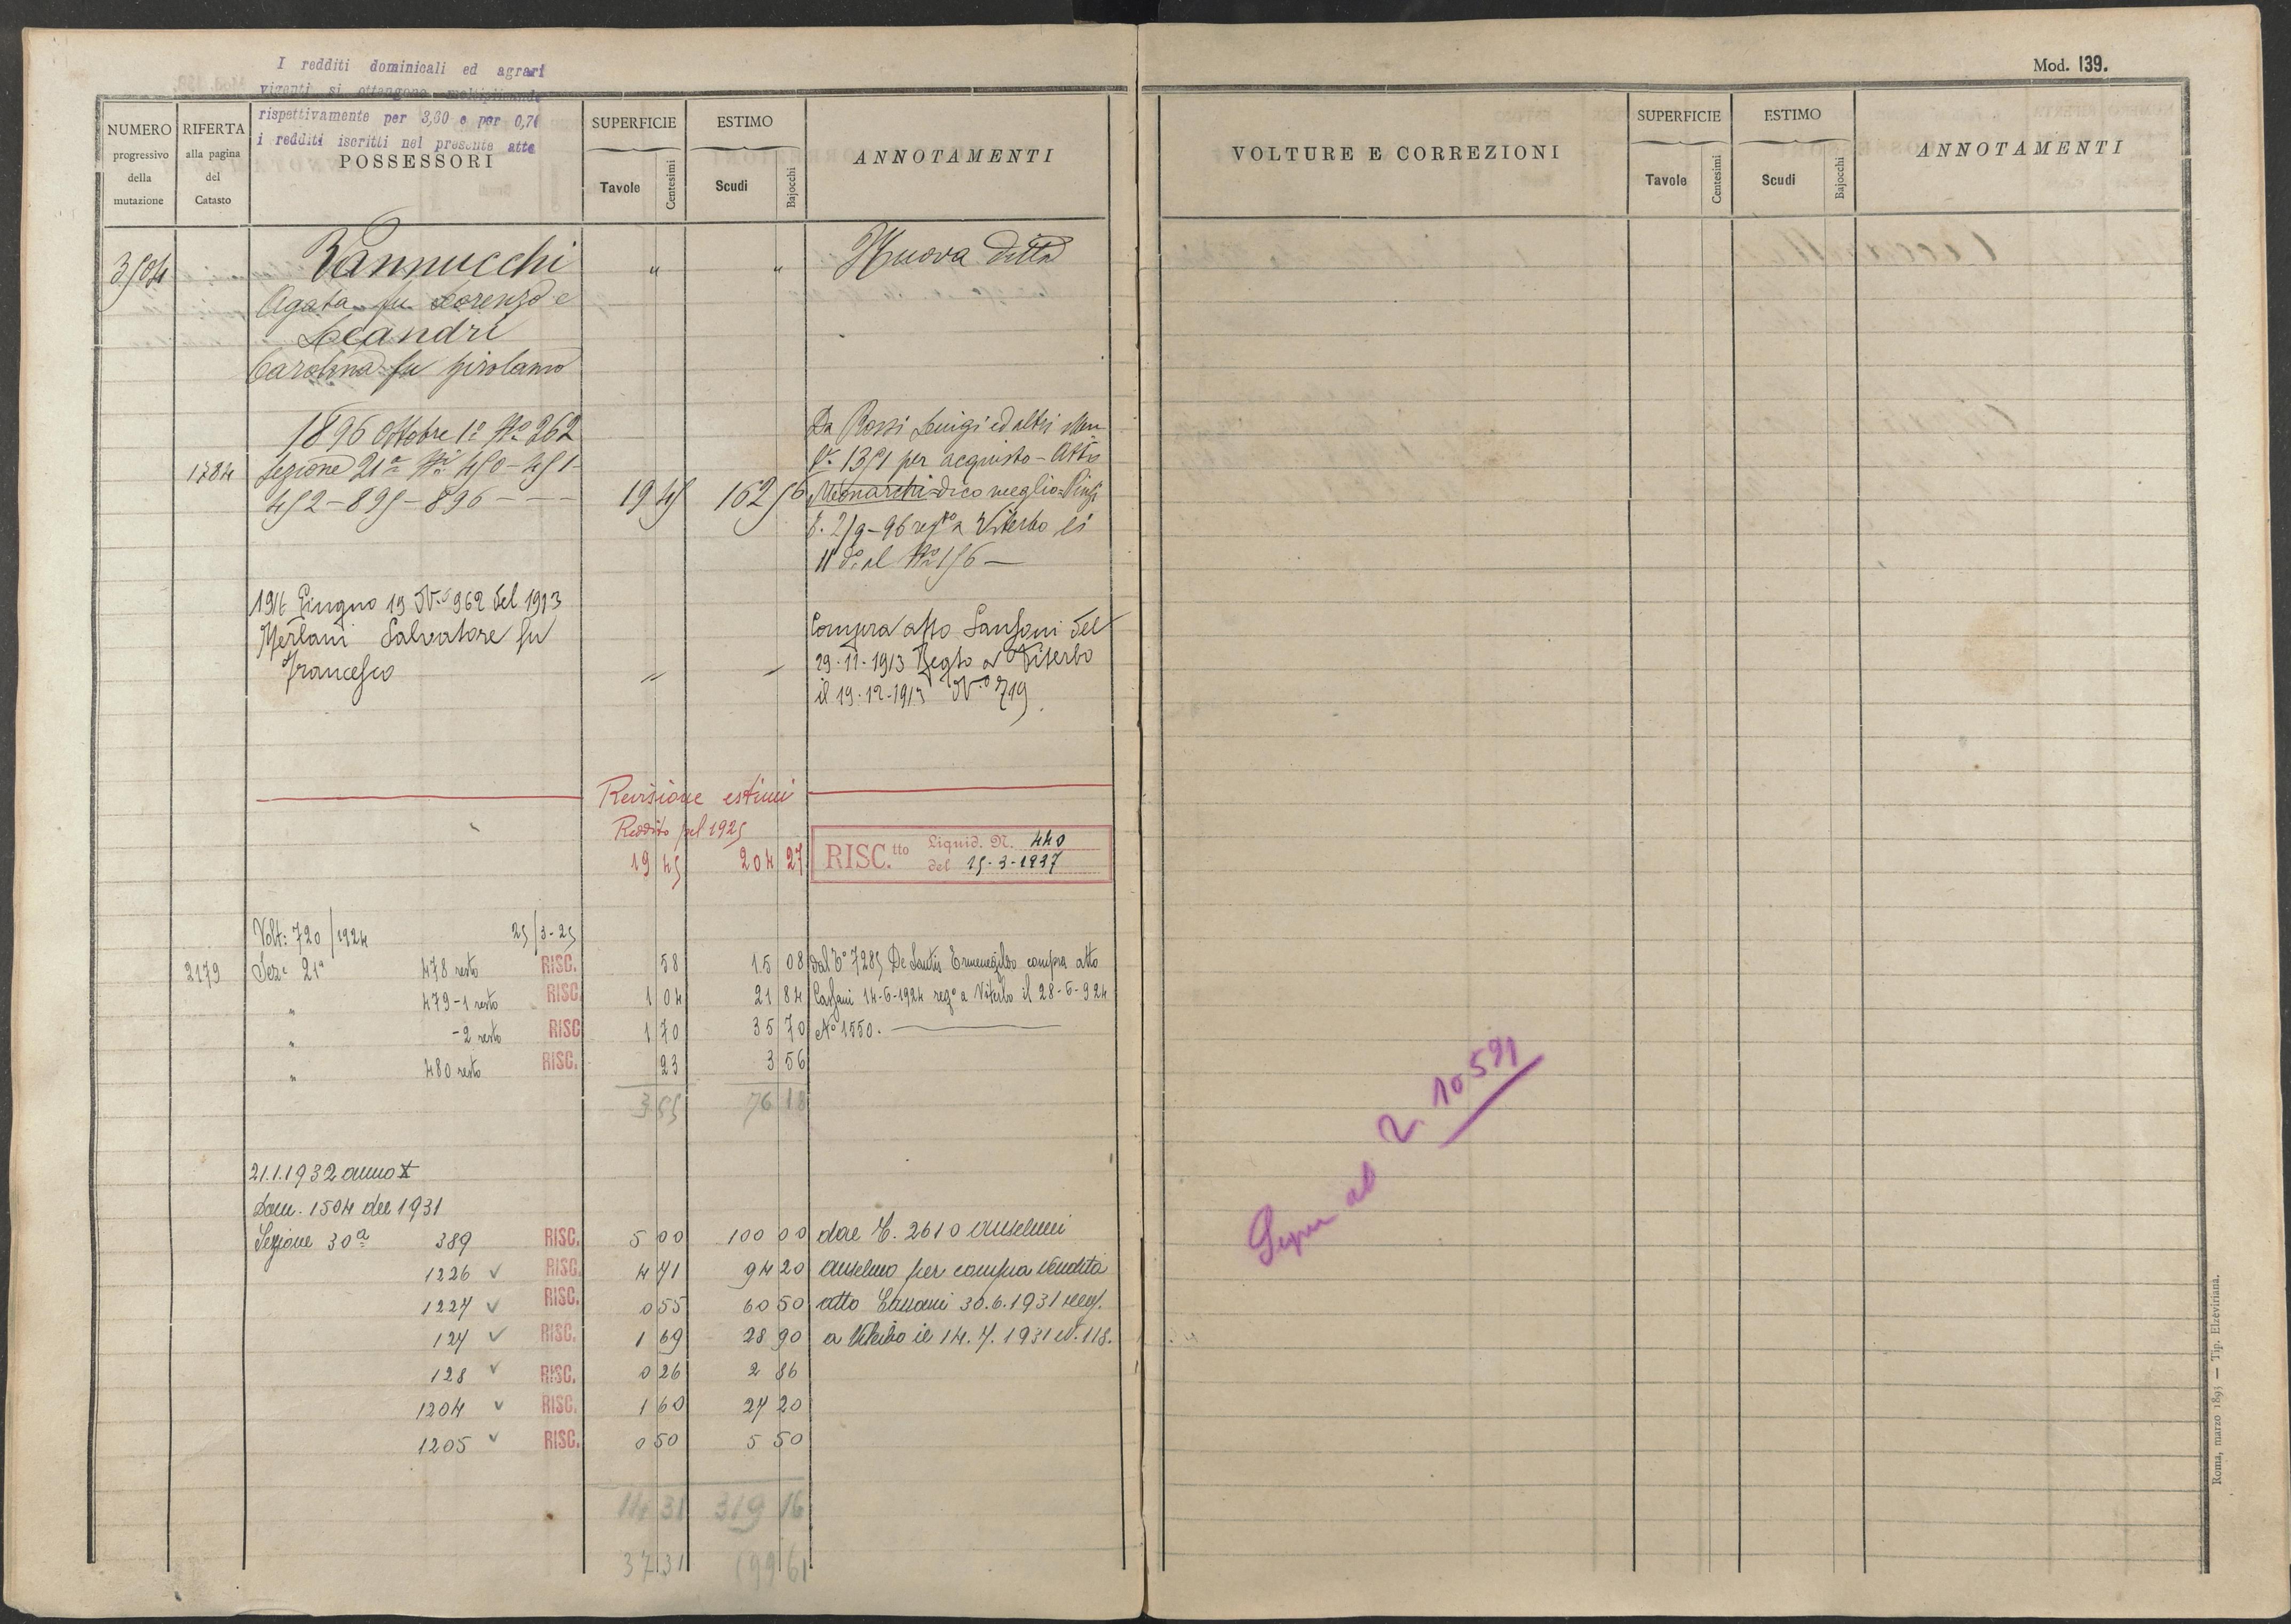 I redditi dominicali ed agrari
vigenti si ottengono moltiplicando
rispettivamente per 3,30 e per 0,70
i redditi iscritti nel presente atto
Mod. 139.
NUMERO progressivo della mutazione
RIFERTA alla pagina del Catasto
POSSESSORI
SUPERFICIE
Tavole
Centesimi
ESTIMO
Scudi
Bajocchi
ANNOTAMENTI
VOLTURE E CORREZIONI
SUPERFICIE
Tavole
Centesimi
ESTIMO
Scudi
Bajocchi
ANNOTAMENTI
3504 Vannucchi " " Nuova Ditta
Agata fu Lorenzo e
Leandri
Carolina fu Girolamo
1896 Ottobre 1° No 262 Da Rossi Luigi ed altri
1784 Sezione 21a Ni 450-451- 1351 per acquisto - Atto
452-895-896 - - - 19 45 162 56 Monarchi = dico meglio =
2/9-96 regto a Viterbo li
11 do al No 156 —
1916 Giugno 19 No 962 del 1913
Merlani Salvatore fu Compra atto Sansoni del
Francesco " " 29-11-1913 Regto a Viterbo
il 19-12-1913 No 719
Revisione estimi
Reddito pel 1925
19 45 204 27 RISC.tto Liquid. N. 440
del 25-3-1937
Volt: 720/1924 25/3-25
2179 Sez. 21a 478 resto RISC. 58 15 08 dal 7285 De Santis Ermenegildo compra atto
" 479-1 resto RISC. 1 04 21 84 14-6-1924 rego a Viterbo il 28-6-924
" -2 resto RISC 1 70 35 70 No 1550. —
" 480 resto RISC. 23 3 56
3 55 76 18
21.1.1932 anno X
Dom. 1504 del 1931
Sezione 30a 389 RISC. 5 00 100 00 dal C. 2610 Anselmi
1226 ✓ RISC. 4 71 94 20 Anselmo per compra vendita
1227 ✓ RISC. 0 55 60 50 atto 30.6.1931 reg.
127 ✓ RISC. 1 69 28 90 a Viterbo il 14.7.1931 N. 118.
128 ✓ RISC. 0 26 2 86
1204 ✓ RISC. 1 60 27 20
1205 ✓ RISC. 0 50 5 50
14 31 319 16
37 31 61
Segue al 2 10591
Roma, marzo 1895 — Tip. Elzeviriana.